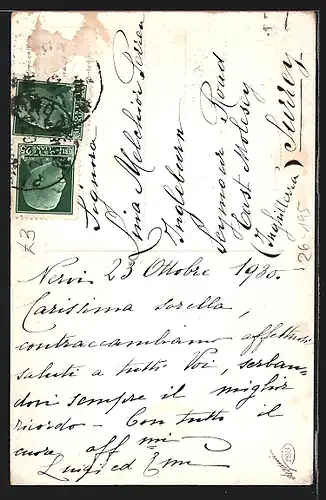 Signora
Lina Melchior
Ingleborn
Seymour Road
East Molesey
(Inghilterra) Surrey
Nervi 23 Ottobre 1930.
Carissima sorella,
contraccambiamo affettuosi
saluti a tutti Voi, serban-
dovi sempre il miglior
ricordo - Con tutto il
cuore aff mi
Luigi ed
26-195